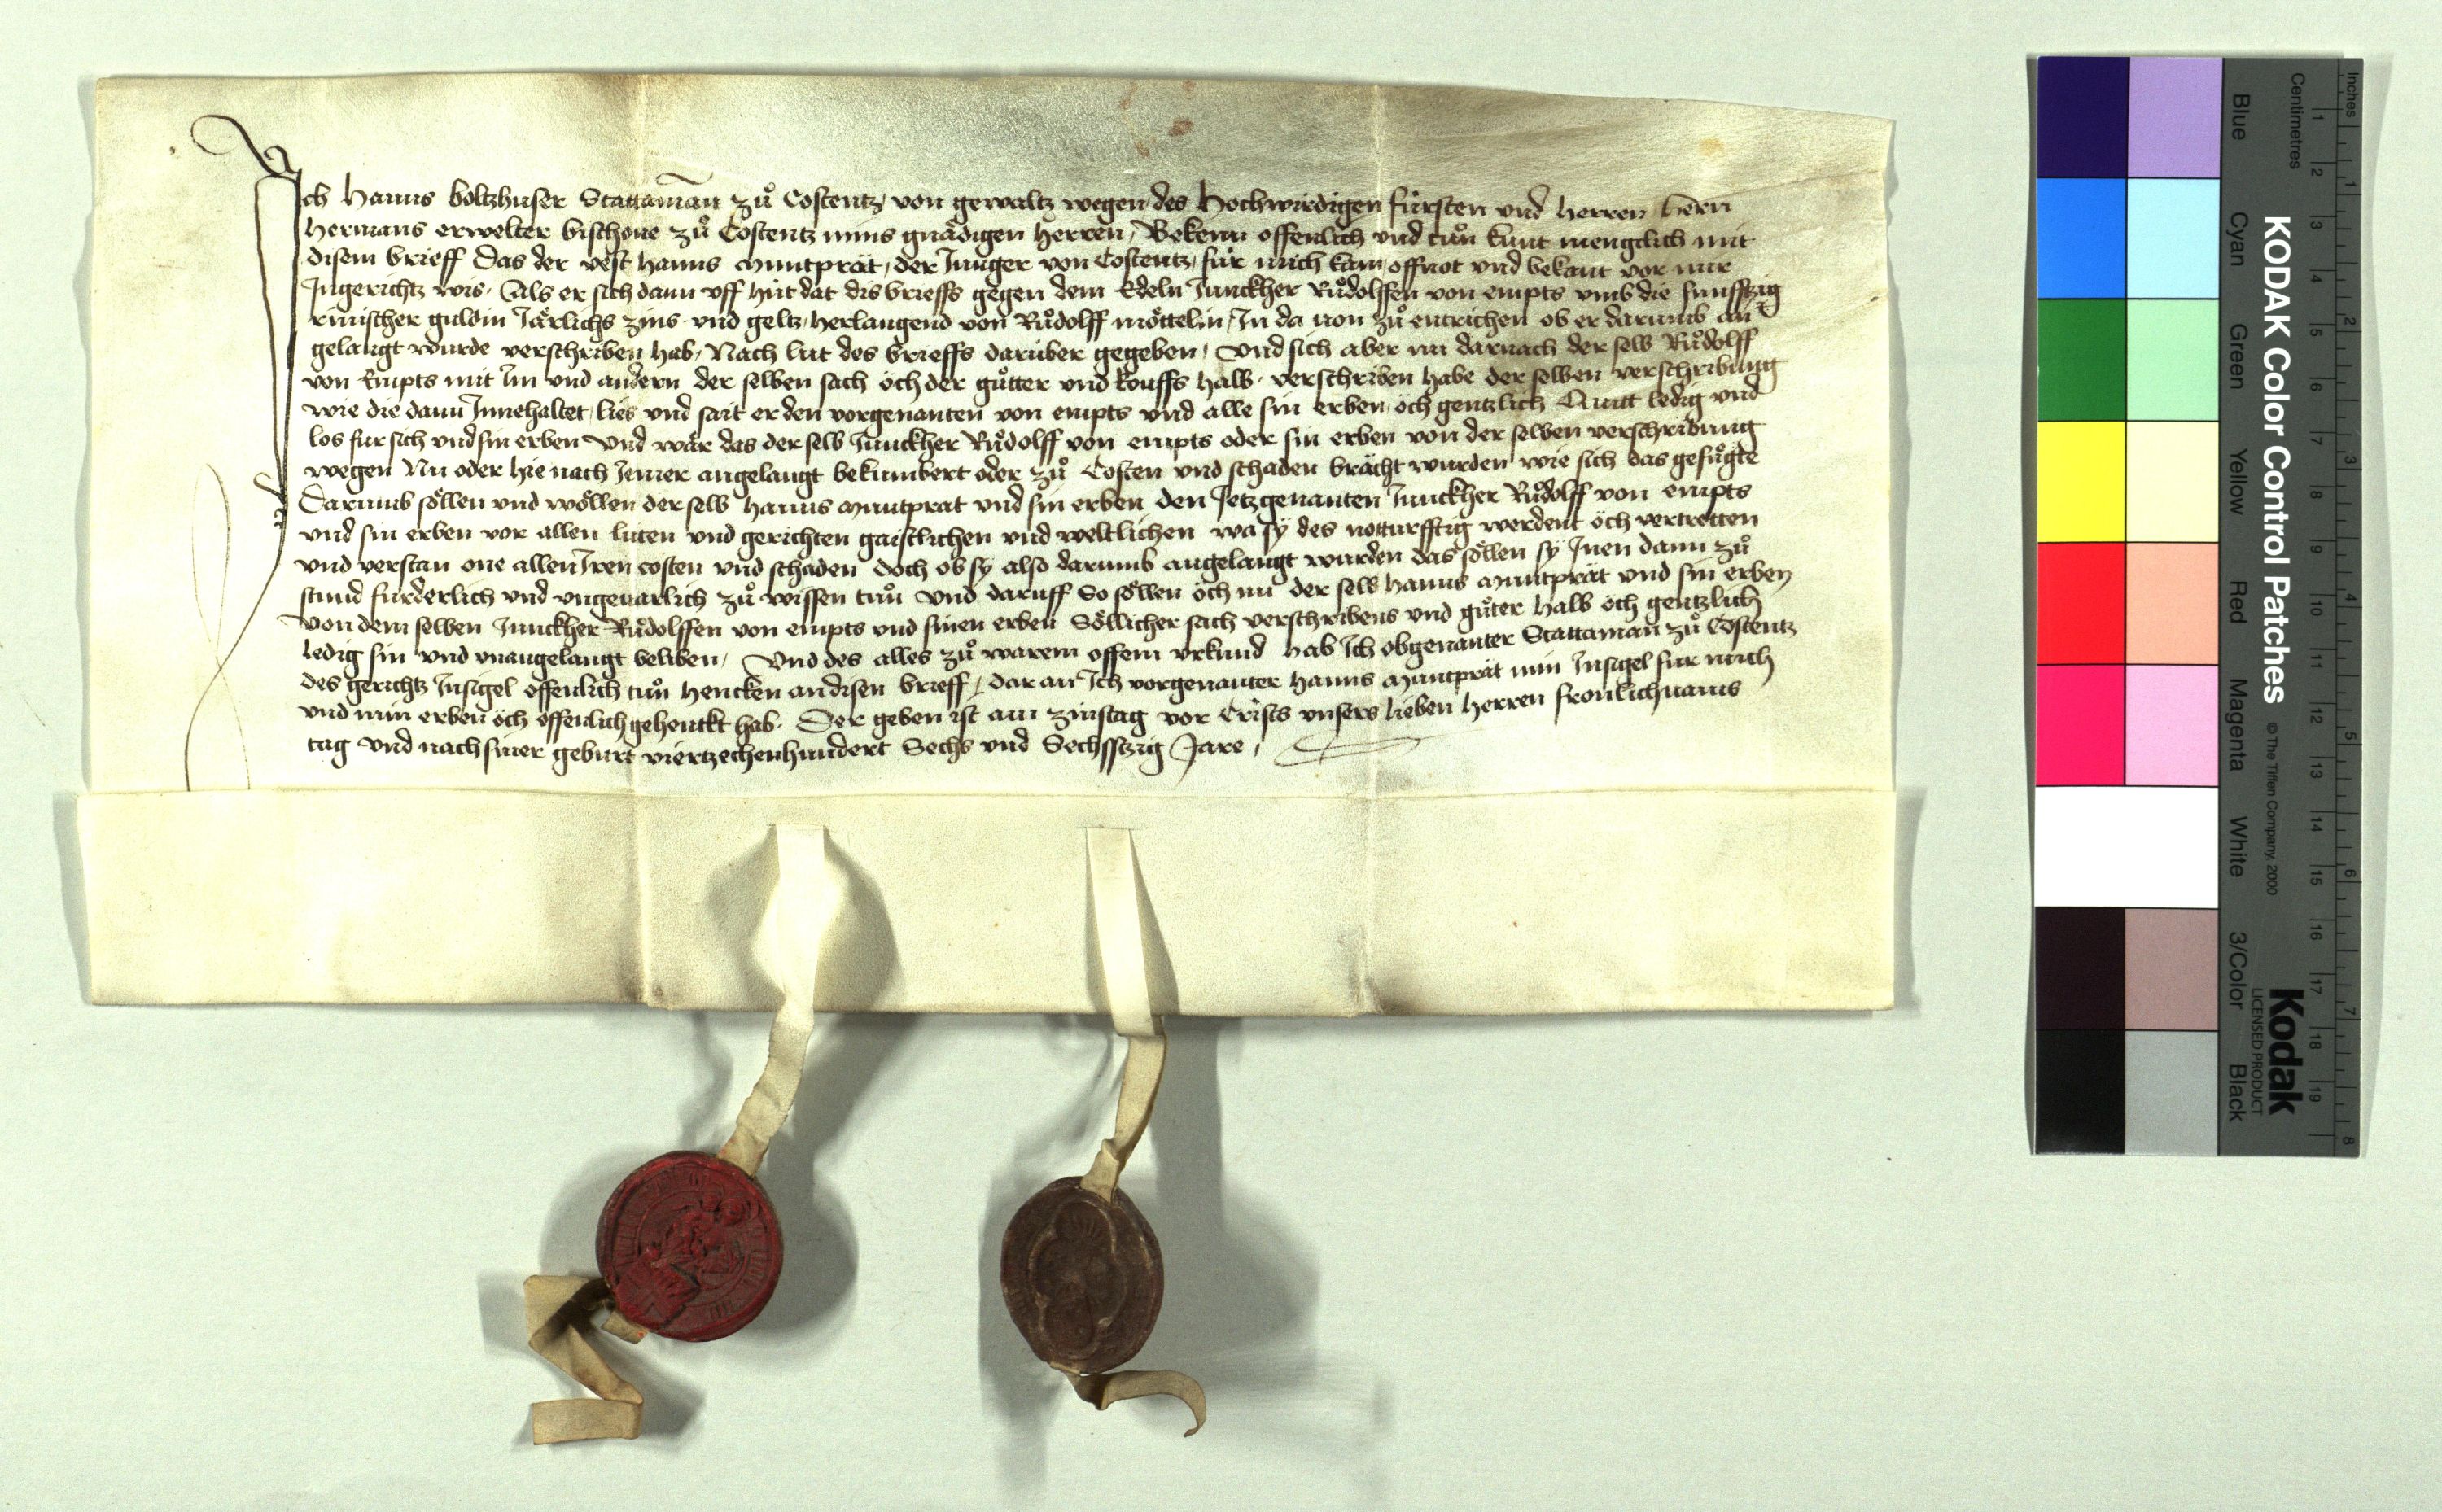 Ich Hanns boltzhuser Stattaman̄ zů Costentz, von gewaltz wegen des Hochwirdigen fürsten vnd herren, hern̄
hermans erwelter bischoue zů Costentz mins gnädigen herren, Bekenn offenlich vnd tůn kunt mengclich mit
disem brieff Das der vest hanns Muntprät, der Junger von Costentz, für mich kam, offnot vnd bekant vor mir
Jngerichtz wis. Als er sich dann vff hüt dat dis brieffs gegen dem Edeln Junckher Růdolffen von empts vmb die funfftzig
rinischer guldin Järlichs zins vnd geltz, herlangend von Růdolff möttelin, Jn da uon zů entrichen ob er darumb an
gelangt wurde verschriben hab, Nach lut des brieffs darüber gegeben, Vnd sich aber nu darnach der selb Růdolff
von Empts mit Jm vnd andern der selben sach och der gůtter vnd kouffs halb. verschriben habe der selben verschribung
wie die dann Jnnehaltet, lies vnd sait er den vorgenanten von empts vnd alle sin erben, öch gentzlich Quitt ledig vnd
los für sich vnd sin erben Vnd wär das der selb Junckher Růdolff von empts oder sin erben von der selben verschribung
wegen Nu oder hie nach Jemer angelangt bekumbert oder zů Costen vnd schaden brächt wurden wie sich das gefůgte
Darumb söllen vnd wöllen der selb hanns Muntprat vnd sin erben den Jetzgenanten Junckher Růdolff von empts
vnd sin erben vor allen lüten vnd gerichten gaistlichen vnd weltlichen wa sÿ des notturfftig werdent öch vertretten
vnd verstan one allen Jren costen vnd schaden Doch ob sÿ also darumb angelangt wurden das söllen sÿ Jnen dann zů
stund fürderlich vnd vngeuarlich zů wissen tůn Vnd daruff So söllen öch nu der selb Hanns Muntprät vnd sin erben
von dem selben Junckher Růdolffen von empts vnd sinen erben Söllicher sach verschribens vnd gůter halb öch gentzlich
ledig sin vnd vnangelangt beliben, Vnd des alles zů warem offem vrkund hab Ich obgenanter Stattaman̄ zů Costentz
des gerichtz Jnsigel offenlich tůn hencken an disen brieff, dar an Ich vorgenanter Hanns Muntprät min Jnsigel für mich
vnd min erben öch offenlich gehenckt hab. Der geben ist am zinstag vor Crists vnsers lieben Herren fronlichnams
tag Vnd nach siner geburt viertzechenhundert Sechs vnd Sechsstzig Jare,
KODAK Color Control Patches
© The Tiffen Company, 2000
Kodak
LICENSED PRODUCT
Blue Cyan Green Yellow Red Magenta White 3/Color Black
Centimetres 1 2 3 4 5 6 7 8 9 10 11 12 13 14 15 16 17 18 19
Inches 1 2 3 4 5 6 7 8